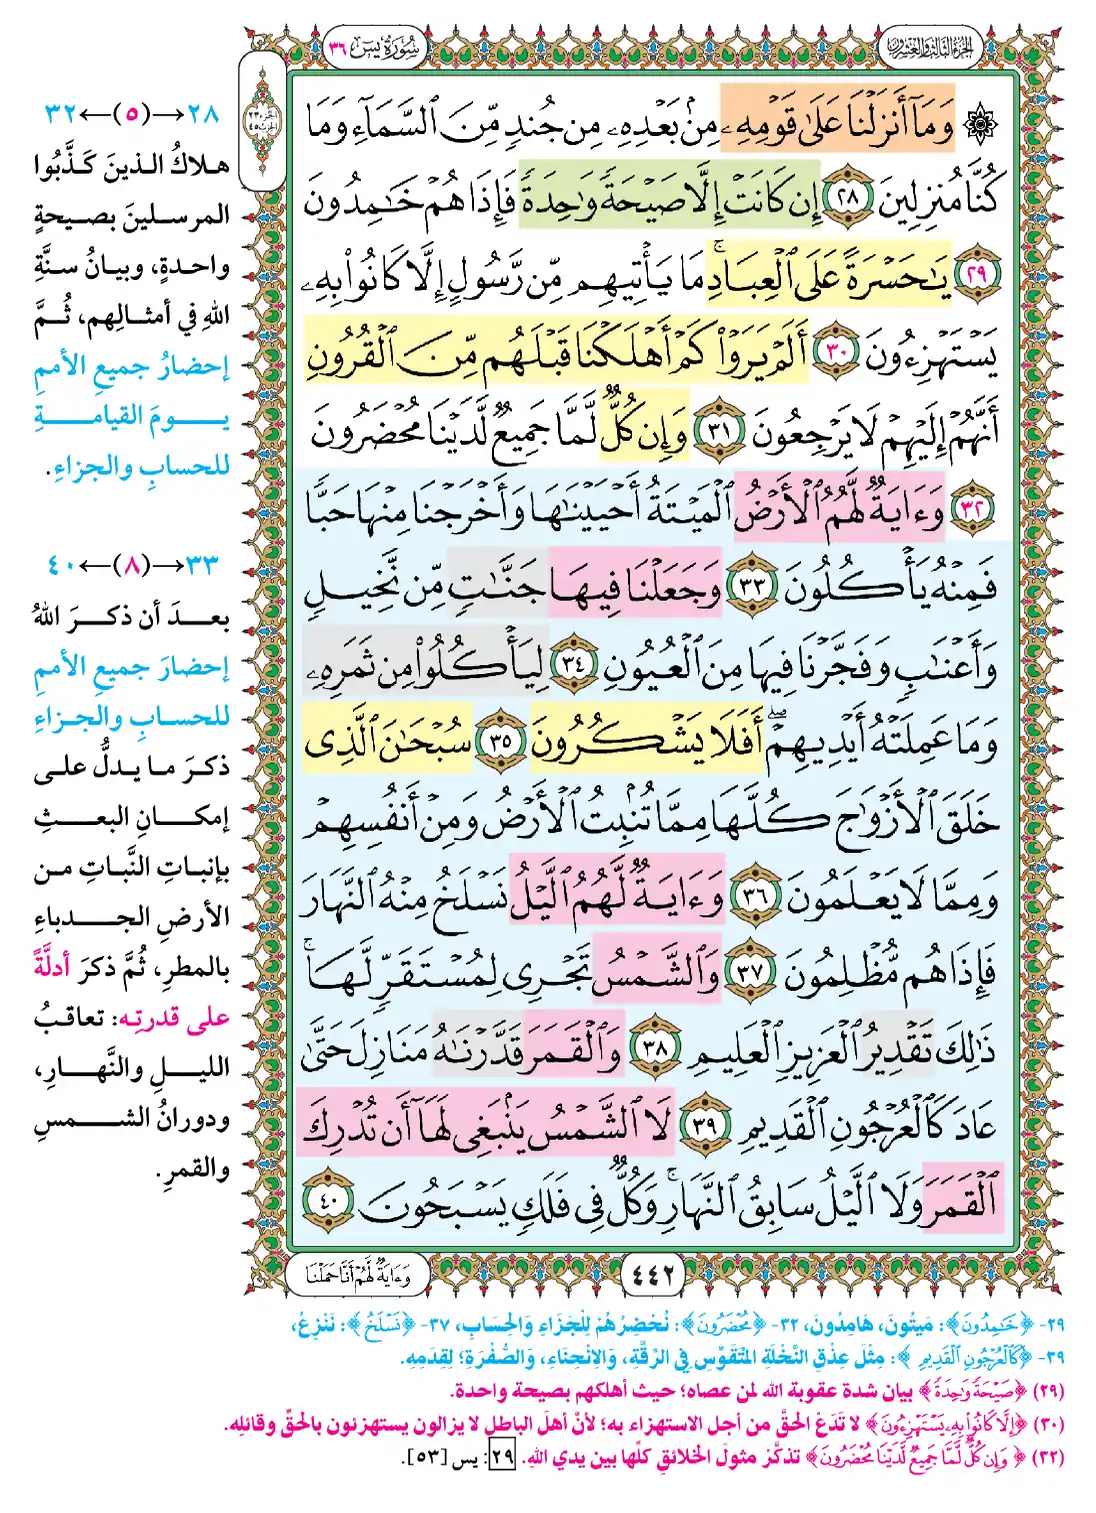 الجزء الثالث والعشرون
سُورَةُ يسٓ ٣٦
الجزء ٢٣
الحزب ٤٥
۞ وَمَآ أَنزَلْنَا عَلَىٰ قَوْمِهِۦ مِنۢ بَعْدِهِۦ مِن جُندٍ مِّنَ ٱلسَّمَآءِ وَمَا
كُنَّا مُنزِلِينَ ٢٨ إِن كَانَتْ إِلَّا صَيْحَةً وَٰحِدَةً فَإِذَا هُمْ خَـٰمِدُونَ
٢٩ يَـٰحَسْرَةً عَلَى ٱلْعِبَادِ ۚ مَا يَأْتِيهِم مِّن رَّسُولٍ إِلَّا كَانُوا۟ بِهِۦ
يَسْتَهْزِءُونَ ٣٠ أَلَمْ يَرَوْا۟ كَمْ أَهْلَكْنَا قَبْلَهُم مِّنَ ٱلْقُرُونِ
أَنَّهُمْ إِلَيْهِمْ لَا يَرْجِعُونَ ٣١ وَإِن كُلٌّ لَّمَّا جَمِيعٌ لَّدَيْنَا مُحْضَرُونَ
٣٢ وَءَايَةٌ لَّهُمُ ٱلْأَرْضُ ٱلْمَيْتَةُ أَحْيَيْنَـٰهَا وَأَخْرَجْنَا مِنْهَا حَبًّا
فَمِنْهُ يَأْكُلُونَ ٣٣ وَجَعَلْنَا فِيهَا جَنَّـٰتٍ مِّن نَّخِيلٍ
وَأَعْنَـٰبٍ وَفَجَّرْنَا فِيهَا مِنَ ٱلْعُيُونِ ٣٤ لِيَأْكُلُوا۟ مِن ثَمَرِهِۦ
وَمَا عَمِلَتْهُ أَيْدِيهِمْ ۖ أَفَلَا يَشْكُرُونَ ٣٥ سُبْحَـٰنَ ٱلَّذِى
خَلَقَ ٱلْأَزْوَٰجَ كُلَّهَا مِمَّا تُنۢبِتُ ٱلْأَرْضُ وَمِنْ أَنفُسِهِمْ
وَمِمَّا لَا يَعْلَمُونَ ٣٦ وَءَايَةٌ لَّهُمُ ٱلَّيْلُ نَسْلَخُ مِنْهُ ٱلنَّهَارَ
فَإِذَا هُم مُّظْلِمُونَ ٣٧ وَٱلشَّمْسُ تَجْرِى لِمُسْتَقَرٍّ لَّهَا ۚ
ذَٰلِكَ تَقْدِيرُ ٱلْعَزِيزِ ٱلْعَلِيمِ ٣٨ وَٱلْقَمَرَ قَدَّرْنَـٰهُ مَنَازِلَ حَتَّىٰ
عَادَ كَٱلْعُرْجُونِ ٱلْقَدِيمِ ٣٩ لَا ٱلشَّمْسُ يَنۢبَغِى لَهَآ أَن تُدْرِكَ
ٱلْقَمَرَ وَلَا ٱلَّيْلُ سَابِقُ ٱلنَّهَارِ ۚ وَكُلٌّ فِى فَلَكٍ يَسْبَحُونَ ٤٠
٤٤٢
وَءَايَةٌ لَّهُمْ أَنَّا حَمَلْنَا
٢٨→(٥)←٣٢
هلاكُ الذينَ كَذَّبُوا
المرسلينَ بصيحةٍ
واحدةٍ، وبيانُ سنَّةِ
اللهِ في أمثالِهم، ثُمَّ
إحضارُ جميعِ الأممِ
يومَ القيامةِ
للحسابِ والجزاءِ.
٣٣→(٨)←٤٠
بعدَ أن ذكرَ اللهُ
إحضارَ جميعِ الأممِ
للحسابِ والجزاءِ
ذكرَ ما يدلُّ على
إمكانِ البعثِ
بإنباتِ النَّباتِ من
الأرضِ الجدباءِ
بالمطرِ، ثُمَّ ذكرَ أدلَّةً
على قدرتِه: تعاقبُ
الليلِ والنَّهارِ،
ودورانُ الشمسِ
والقمرِ.
٢٩- ﴿خَـٰمِدُونَ﴾: مَيِّتُونَ، هَامِدُونَ، ٣٢- ﴿مُحْضَرُونَ﴾: نُحْضِرُهُمْ لِلْجَزَاءِ وَالحِسَابِ، ٣٧- ﴿نَسْلَخُ﴾: نَنْزِعُ،
٣٩- ﴿كَٱلْعُرْجُونِ ٱلْقَدِيمِ﴾: مِثْلَ عِذْقِ النَّخْلَةِ المُتَقَوِّسِ فِي الرِّقَّةِ، وَالِانْحِنَاءِ، وَالصُّفْرَةِ؛ لِقِدَمِهِ.
(٢٩) ﴿صَيْحَةً وَٰحِدَةً﴾ بيان شدة عقوبة الله لمن عصاه؛ حيث أهلكهم بصيحة واحدة.
(٣٠) ﴿إِلَّا كَانُوا۟ بِهِۦ يَسْتَهْزِءُونَ﴾ لا تَدَعْ الحقَّ من أجل الاستهزاء به؛ لأنّ أهلَ الباطلِ لا يزالون يستهزئون بالحقِّ وقائلِه.
(٣٢) ﴿وَإِن كُلٌّ لَّمَّا جَمِيعٌ لَّدَيْنَا مُحْضَرُونَ﴾ تذكَّرْ مثولَ الخلائقِ كلِّها بين يدي اللهِ. ٢٩: يس [٥٣].